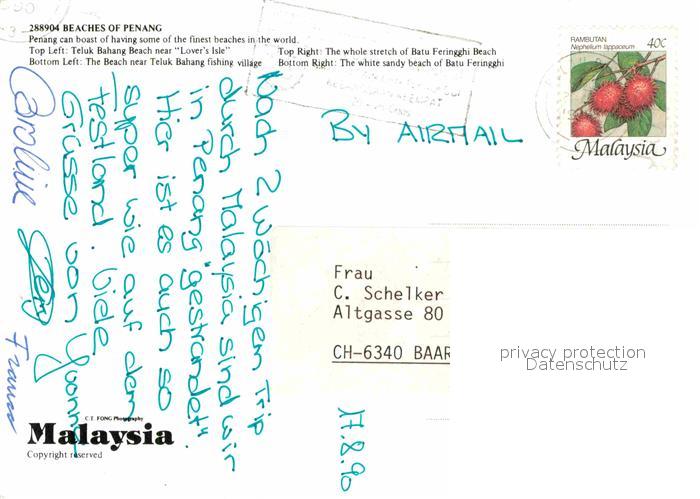 288904 BEACHES OF PENANG
Penang can boast of having some of the finest beaches in the world.
Top Left: Teluk Bahang Beach near "Lover's Isle"
Top Right: The whole stretch of Batu Feringghi Beach
Bottom Left: The Beach near Teluk Bahang fishing village
Bottom Right: The white sandy beach of Batu Feringghi
RAMBUTAN
Nephelium lappaceum
40c
Malaysia
BY AIRMAIL
Nach 2 wöchigem Trip
durch Malaysia sind wir
in Penang "gestrandet".
Hier ist es auch so
super wie auf dem
Festland. Viele
Grüsse von Yvonne
Caroline
Franco
17.8.90
Frau
C. Schelker
Altgasse 80
CH-6340 BAAR
privacy protection
Datenschutz
C.T. FONG Photography
Malaysia
Copyright reserved